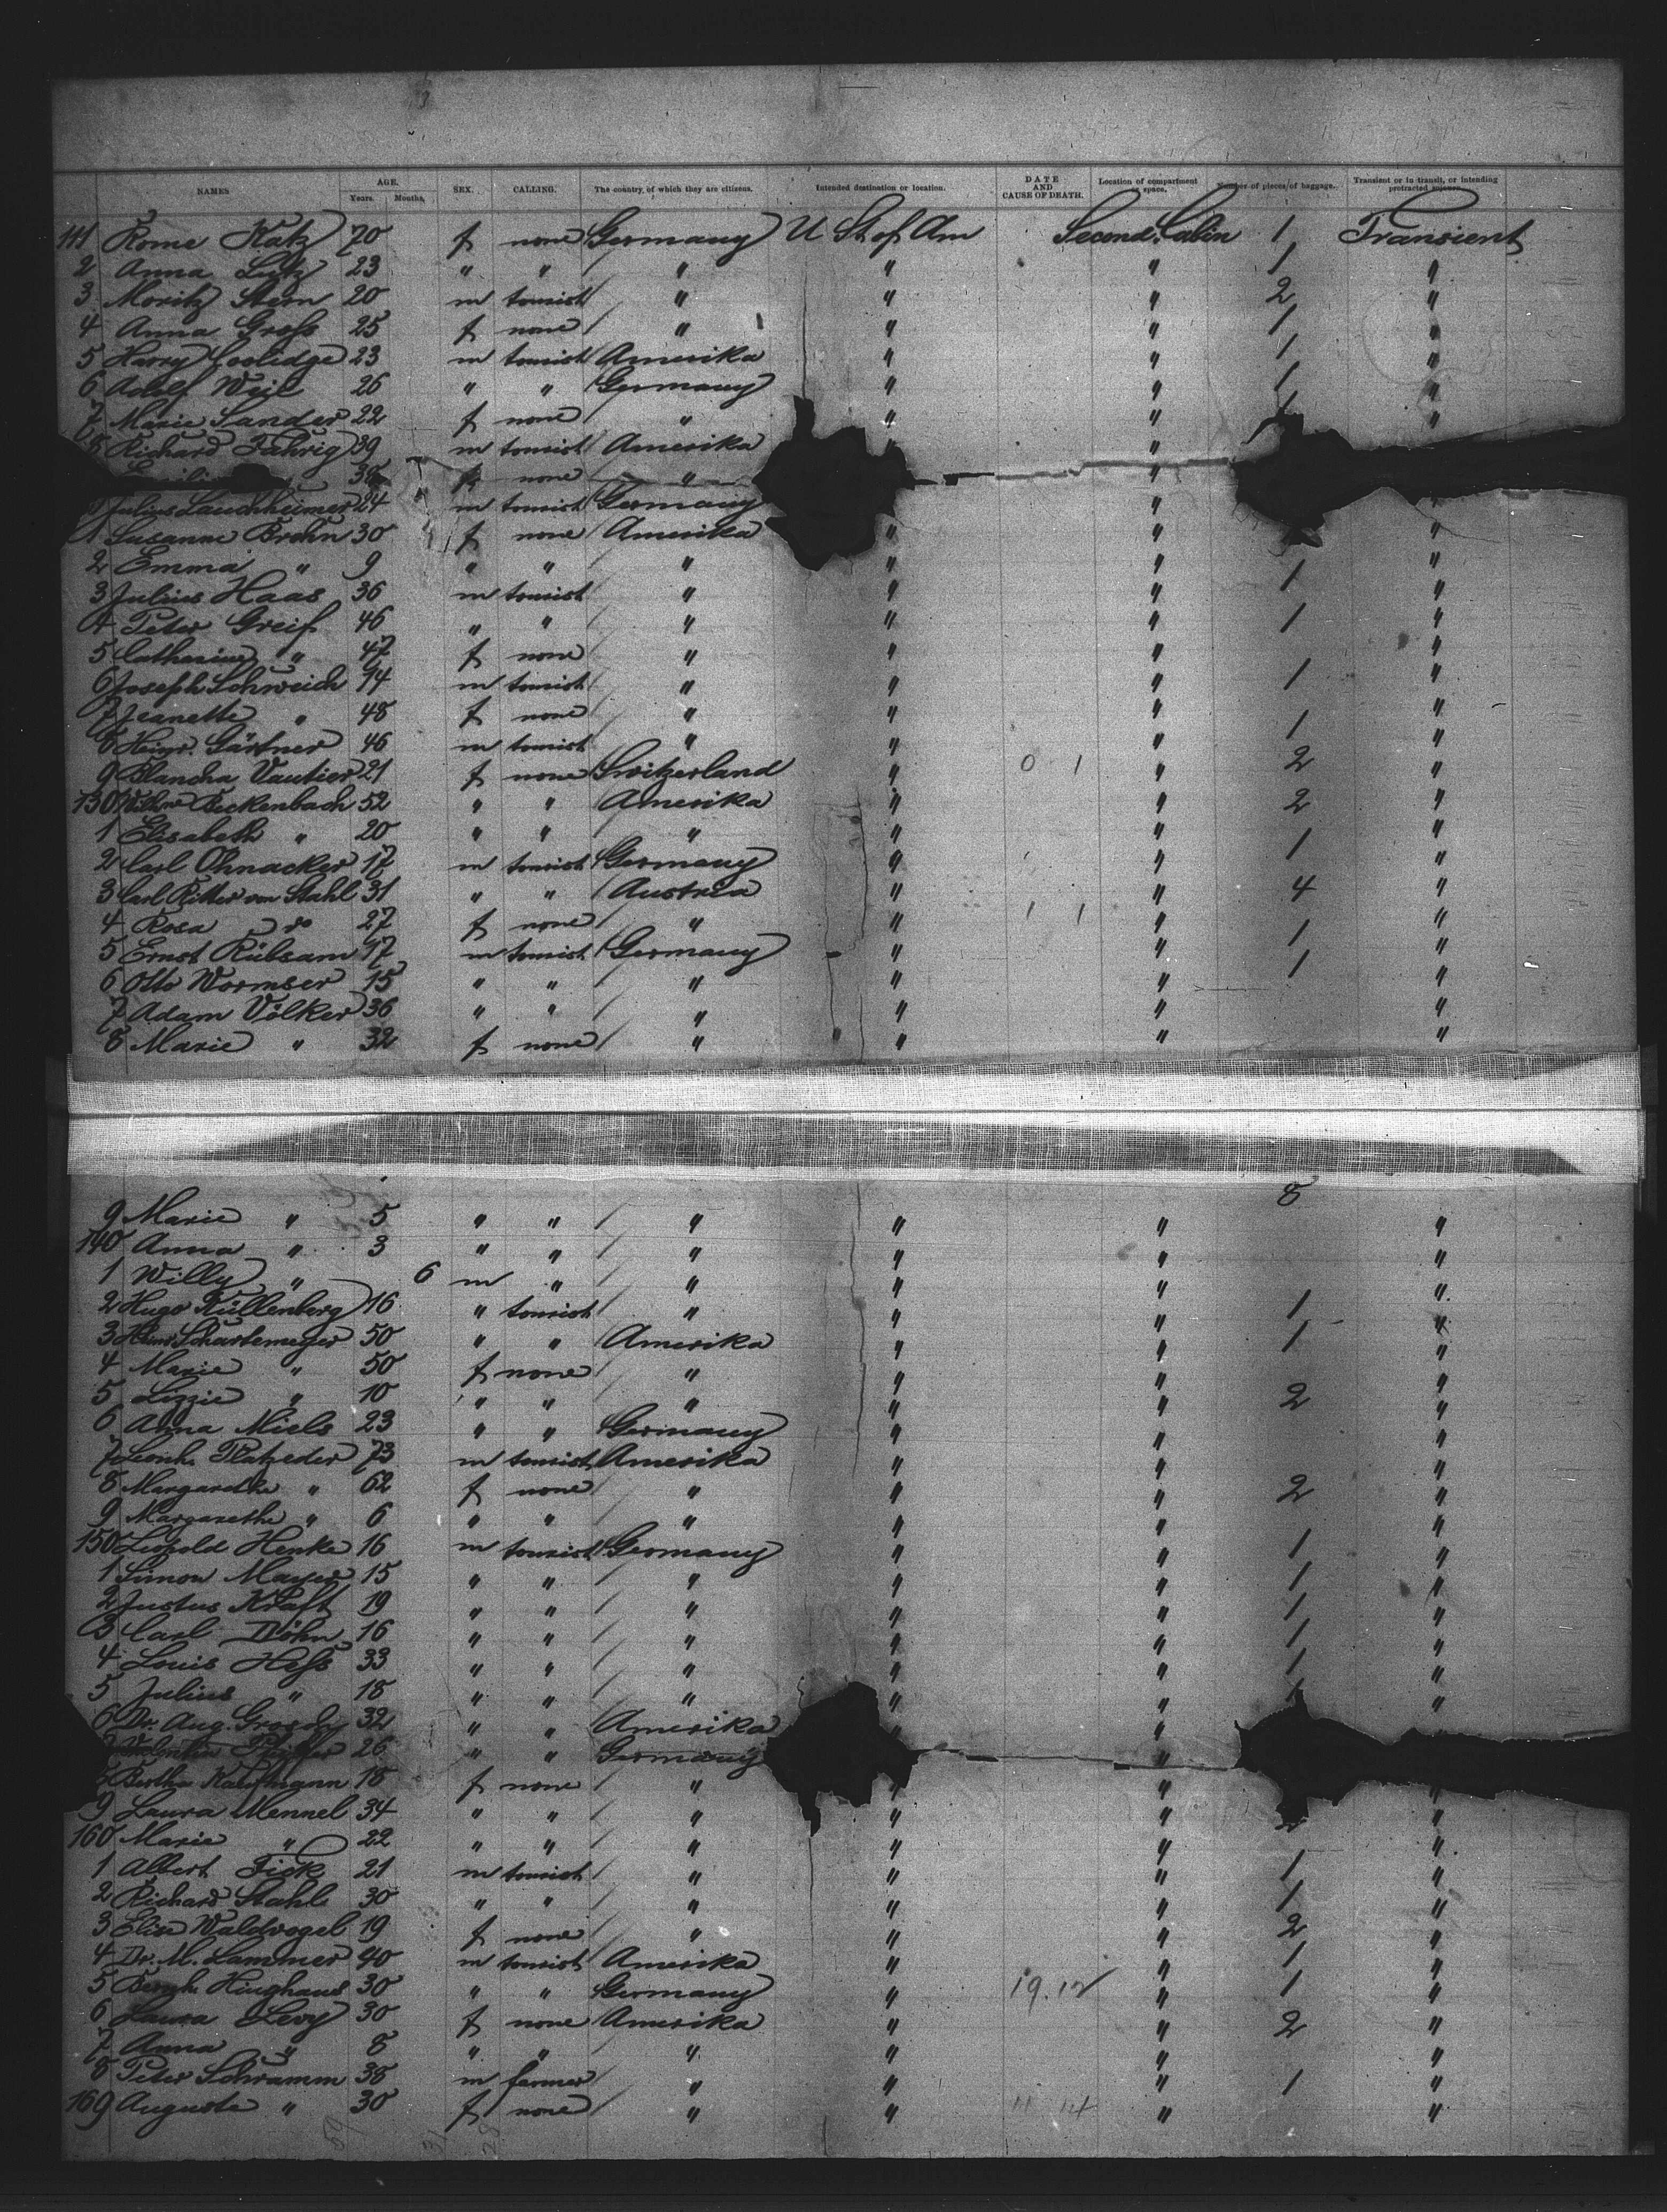 NAMES AGE. Years. Months, SEX. CALLING. The country, of which they are citizens. Intended destination or location. DATE AND CAUSE OF DEATH. Location of compartment or space. Number of pieces of baggage. Transient or in transit, or intending protracted sojourn.
111 Rome Katz 70 f none Germany U St of Am Second Cabin 1 Transient
2 Anna Lutz 23 " " " " " 1 "
3 Moritz Stern 20 m tourist " " " 2 "
4 Anna Groß 25 f none " " " 1 "
5 Harry Coolidge 23 m tourist Amerika " " 1 "
6 Adolf Weil 26 " " Germany " " 1 "
7 Marie Sander 22 f none " " " 1 "
8 Richard Fahrig 39 m tourist Amerika " "
38 f none " "
Julius Lauchheimer 24 m tourist Germany " "
1 Susanne Brohn 30 f none Amerika " " "
2 Emma " 9 " " " " " "
3 Julius Haas 36 m tourist " " " 1 "
4 Peter Greif 46 " " " " " 1 "
5 Catharine " 47 f none " " " "
6 Joseph Schweich 74 m tourist " " " 1 "
7 Jeanette " 48 f none " " " "
8 Heinr. Gärtner 46 m tourist " " " 1 "
9 Blancha Vautier 21 f none Switzerland " 0 1 " 2 "
130 Beckenbach 52 " " Amerika " " 2 "
1 Elisabeth " 20 " " " " " "
2 Carl Ohnacker 17 m tourist Germany " " 1 "
3 Carl Ritter von Stahl 31 " " Austria " " 4 "
4 Rosa do 27 f none " " 1 1 " "
5 Ernst Rübsam 17 m tourist Germany " " 1 "
6 Otto Wormser 15 " " " " " 1 "
7 Adam Völker 36 " " " " " "
8 Marie " 32 f none " " " "
8
9 Marie " 5 " " " " " "
140 Anna " 3 " " " " " "
1 Willy " 6 m " " " " "
2 Hugo Küllenberg 16 " tourist " " " 1 "
3 Heinr Schartemeyer 50 " " Amerika " " 1 "
4 Marie " 50 f none " " " "
5 Lizzie " 10 " " " " " 2 "
6 Anna Miels 23 " " Germany " " "
7 Leonh. Platzeder 73 m tourist Amerika " " "
8 Margarethe " 62 f none " " " 2 "
9 Margarethe " 6 " " " " " "
150 Leopold Henke 16 m tourist Germany " " 1 "
1 Simon Mayer 15 " " " " " 1 "
2 Justus Kraft 19 " " " " " 1 "
3 Carl Döhn 16 " " " " " 1 "
4 Louis Heß 33 " " " " " 1 "
5 Julius " 18 " " " " " 1 "
6 Dr. Aug. Grosch 32 " " Amerika " "
26 " " Germany "
8 Bertha Kaufmann 18 f none " " "
9 Laura Mennel 34 " " " " " 2 "
160 Marie " 22 " " " " " "
1 Albert Fick 21 m tourist " " " 1 "
2 Richard Stahl 30 " " " " " 1 "
3 Elise Waldvogel 19 f none " " " 2 "
4 Dr. M. Lammer 40 m tourist Amerika " " 1 "
5 Bernh. Hinghaus 30 " " Germany " 19.12 " 1 "
6 Laura Levy 30 f none Amerika " " 2 "
7 Anna " 8 " " " " " "
8 Peter Schramm 38 m farmer " " " 1 "
169 Auguste " 30 f none " " 11 14 " "